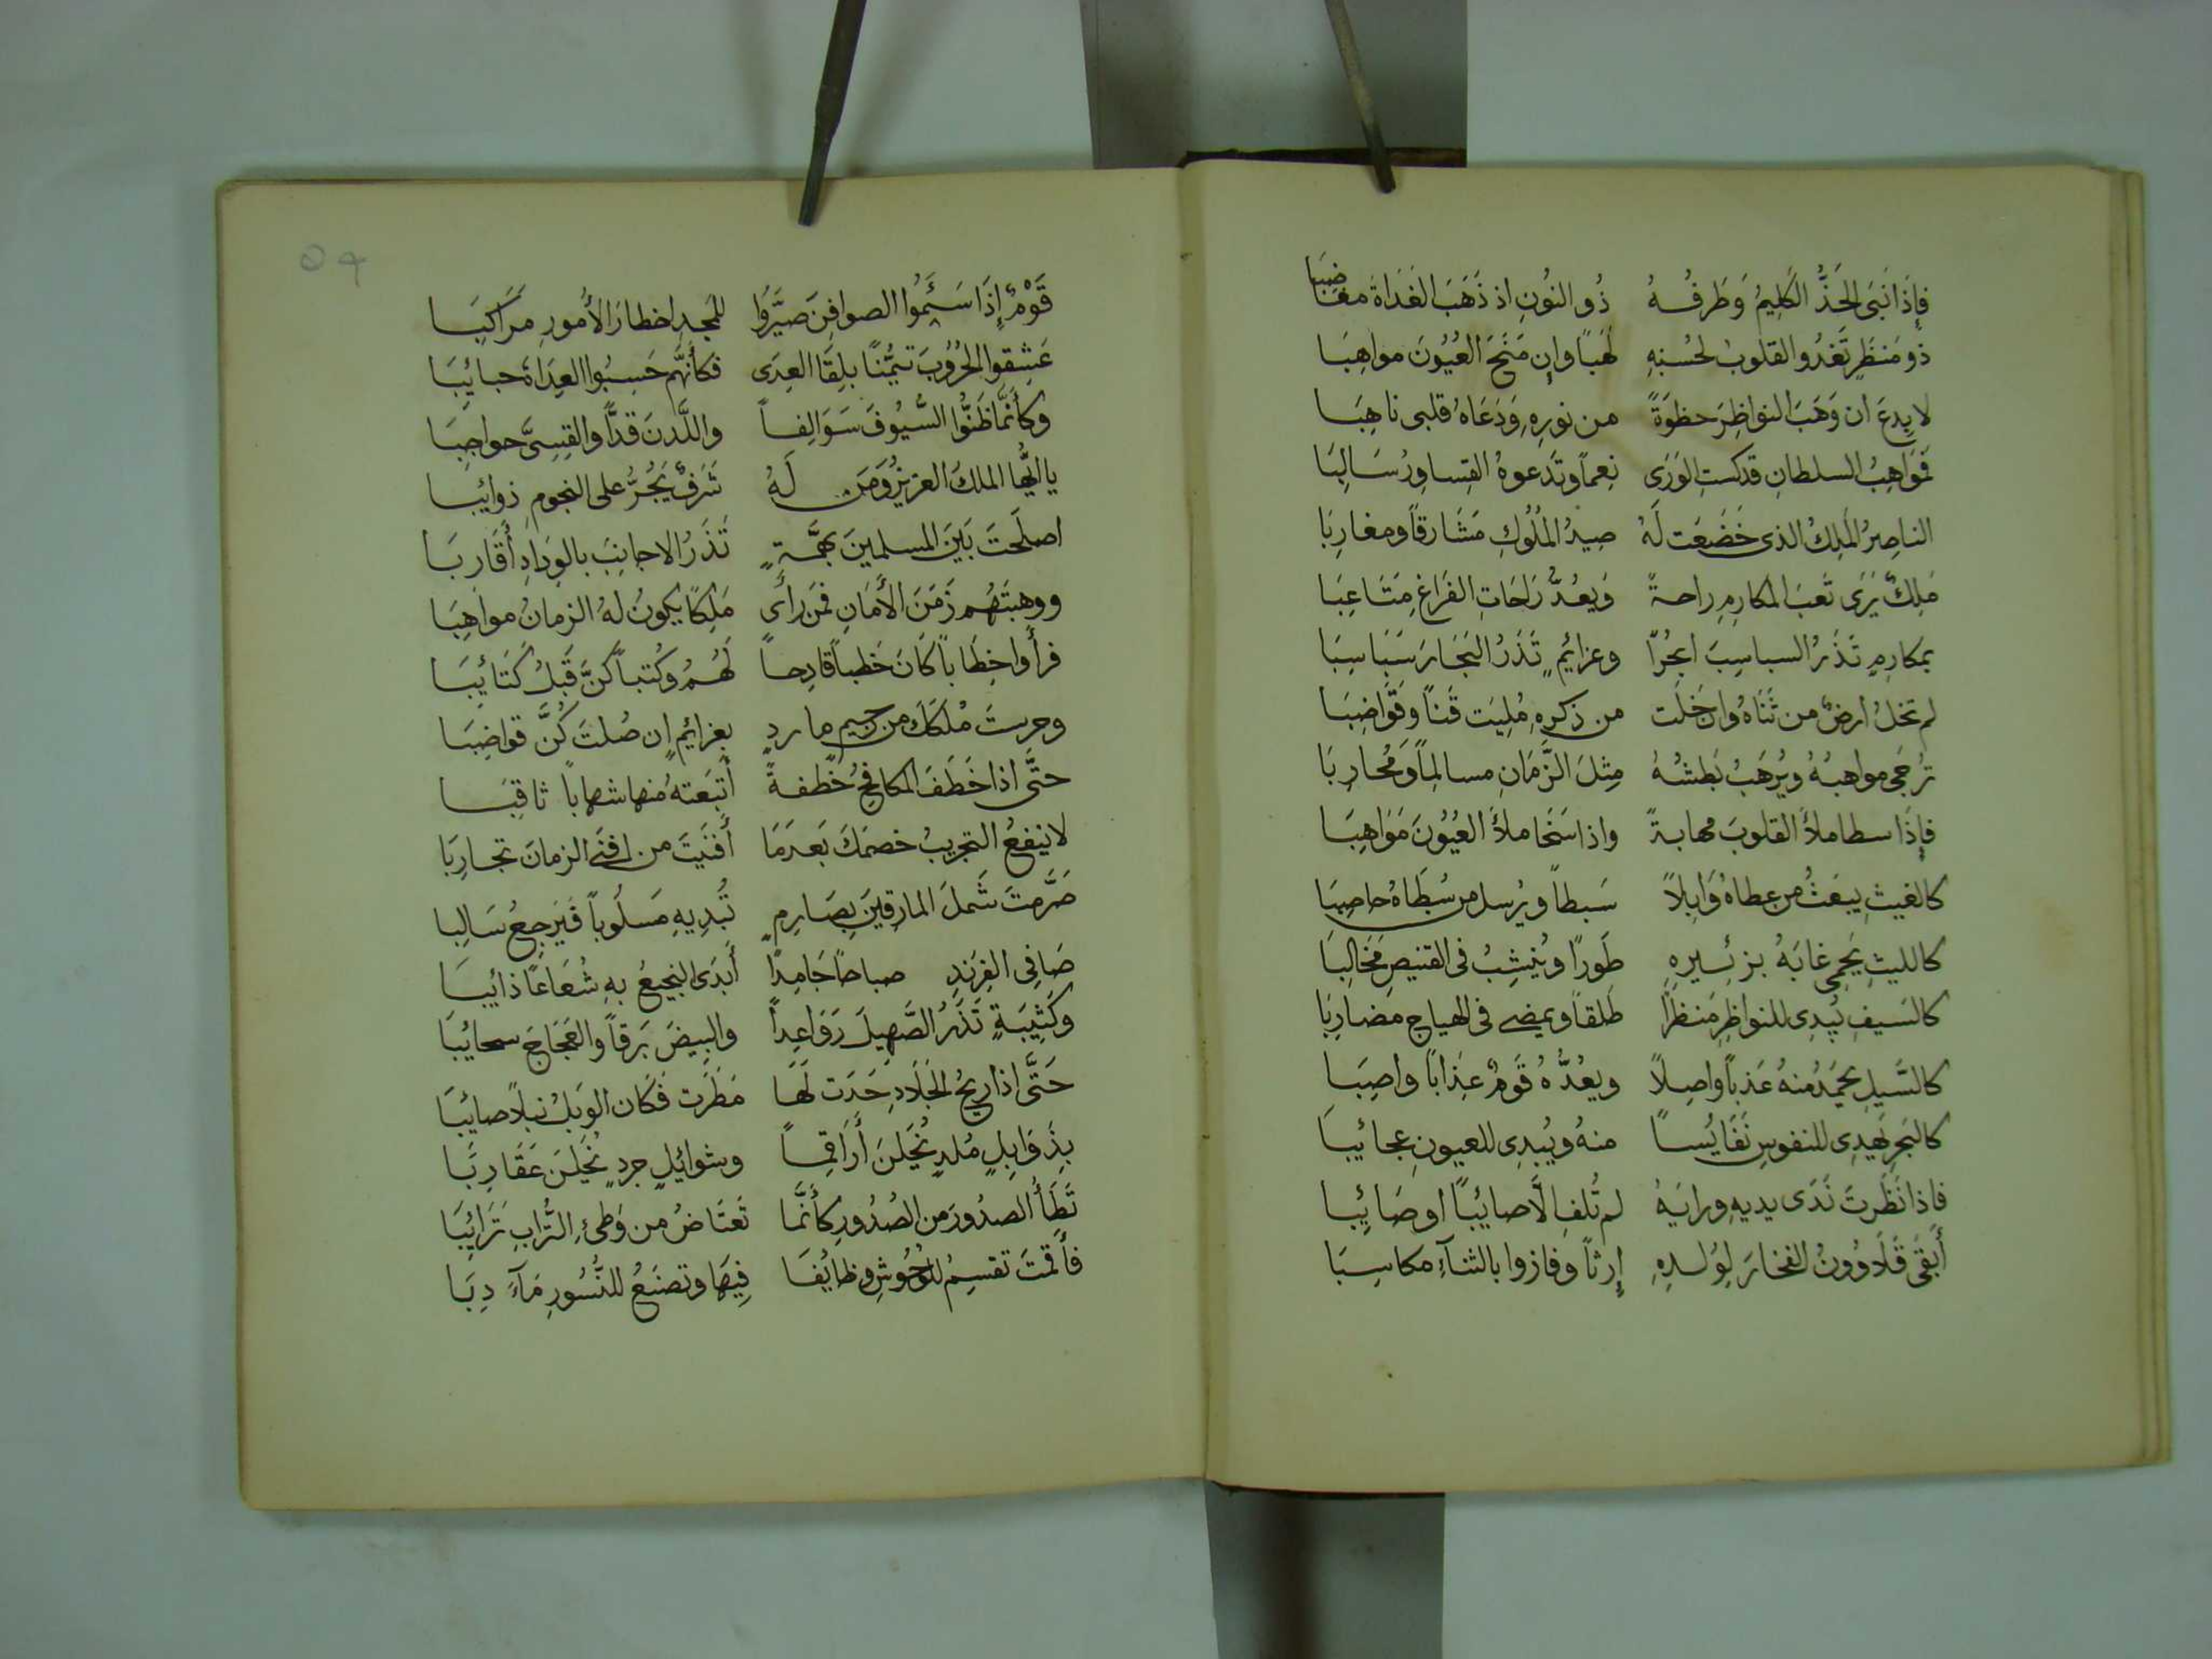 فإِذَا انَبَى الخَدُّ الكَلِيمُ وَطَرفُهُ ذُو النُونِ اذ ذَهَبَ الغَدَاةَ مغَاضِبَا
ذو مَنظَرٍ تَغدُو القلوبُ لحُسنِهِ نَهبًا وإن مَنَحَ العُيُونَ مواهِبَا
لا بِدعَ ان وَهَبَ النواظِرَ حظوَةً من نورِهِ وَدَعَاهُ قلبى ناهِبَا
فَمَوَاهِبُ السلطانِ قد كستِ الوَرَى نِعماً وتَدعوهُ القِساورُ سَالِبَا
الناصِرُ المَلِكُ الذى خَضَعَت لَهُ صِيدُ المُلُوكِ مَشَارقاً ومغارِبَا
مَلِكٌ يَرَى تَعَبَ المكارِمِ راحةً وَيعُدُّ رَاحَاتِ الفَرَاغِ مِتَاعِبَا
بمَكارِمٍ تَذَرُ السباسِبَ ابحُرًا وعزائِمٍ تَذَرُ البَحَارَ سَبَاسِبَا
لم تخلُ ارضٌ من ثَنَاهُ وان خَلَت من ذكرِهِ مُلِيَت قَناً وقَوَاضِبَا
تُرجَى مواهبُهُ ويُرهَبُ بَطشُهُ مِثلَ الزَّمَانِ مسالِماً وَمُحَارِبَا
فإِذَا سطا ملأَ القلوبَ مهابةً واذا سَخَا ملأَ العُيُونَ مَوَاهِبَا
كالغيثِ يبعَثُ من عطاهُ وَابِلاً سَبطاً ويُرسل من سُطَاهُ حاصِبَا
كالليثِ يَحمِى غابَهُ بزئِيرِهِ طَورًا ويُنشِبُ فى القنيصِ مَخَالِبَا
كالسَيفِ يُبدِى للنواظِرِ مَنظرًا طَلقاً ويمضى فى الهياجِ مَضارِبَا
كالسَّيلِ يحمَدُ منهُ عَذباً واصِلاً ويعُدُّهُ قَومٌ عِذَابًا واصِبَا
كالبَحرِ يَهدِى للنفوسِ نَفَايِسًا منهُ ويُبدِى للعيونِ عجائِبَا
فاذا نَظَرتَ نَدَى يديهِ ورايَهُ لم تُلفِ الَّا صائِبًا او صَائِبا
أبقَى قَلَاوُونُ الفخارَ لِوُلدِهِ إِرثًا وفازوا بالثناَءِ مكاسِبَا
قَومٌ إِذَا سَئِمُوا الصوافِنَ صيَّرُوا للمَجدِ اخطارَ الأُمورِ مَرَاكِبَا
عَشِقوا الحُرُوبَ تَيَمُّنًا بلِقَا العِدَى فكأَنَّهُم حَسِبُوا العِدَاةَ حبائِبَا
وكأَنَّمَا ظَنُّوا السُّيُوفَ سَوَالِفاً واللَّدنَ قدًّا والقِسِىَّ حواجِبَا
يا ايُّها الملكُ العزيزُ وَمَن لَهُ شَرَفٌ يَجُرُّ على النجومِ ذوائبا
اصلَحتَ بَينَ المسلمينَ بهِمَّةٍ تَذَرُ الاجانِبَ بالوِدَادِ أَقَارِبَا
ووهبتَهُم زَمَنَ الأَمَانِ فَمَن رأَى مَلِكًا يكونُ لهُ الزمانُ مواهِبَا
فرأَوا خِطَاباً كَانَ خَطباً قادِحاً لَهُمُ وكُتباً كُنَّ قَبلُ كَتَائِبَا
وحرستَ مُلكَكَ من رجيمٍ ماردٍ بعزائِمٍ إن صُلتَ كُنَّ قواضِبَا
حتَّى اذا خَطَفَ المكافِحُ خَطفةً أَتبَعتهُ منها شهاباً ثاقِبَا
لا ينفعُ التجريبُ خصمَكَ بَعدَمَا أَفنَيتَ من افنَى الزمانَ تجارِبَا
صَرَّمتَ شَملَ المارقِينَ بِصَارِمٍ تُبدِيهِ مَسلُوباً فَيَرجِعُ سَالِبا
صَافِى الفِرَندِ صباحًا جَامِدًا أَبدَى النجيعُ بهِ شُعَاعًا ذائِبَا
وكَتِيبَةٍ تَذَرُ الصَّهِيلَ رَوَاعِداً والبِيضَ بَرقاً والعَجَاجَ سحائِبَا
حَتَّى اذا ريحُ الجَلَادِ حَدَت لَهَا مَطَرَت فَكَان الوَبلُ نبلاً صائِبَا
بِذَوَابِلٍ مُلدٍ يُخَلنَ أَرَاقِماً وشوائِلٍ جردٍ يُخَلنَ عَقَارِبَا
تَطَأُ الصدُورَ من الصُدُورِ كأَنَّمَا تَعتَاضُ من وَطىءِ التُّرابِ تَرَائِبَا
فأَقمتَ تقسِمُ للوُحُوشِ وظايُفَا فِيهَا وتصنَعُ للنُّسُورِ مَآدِبَا